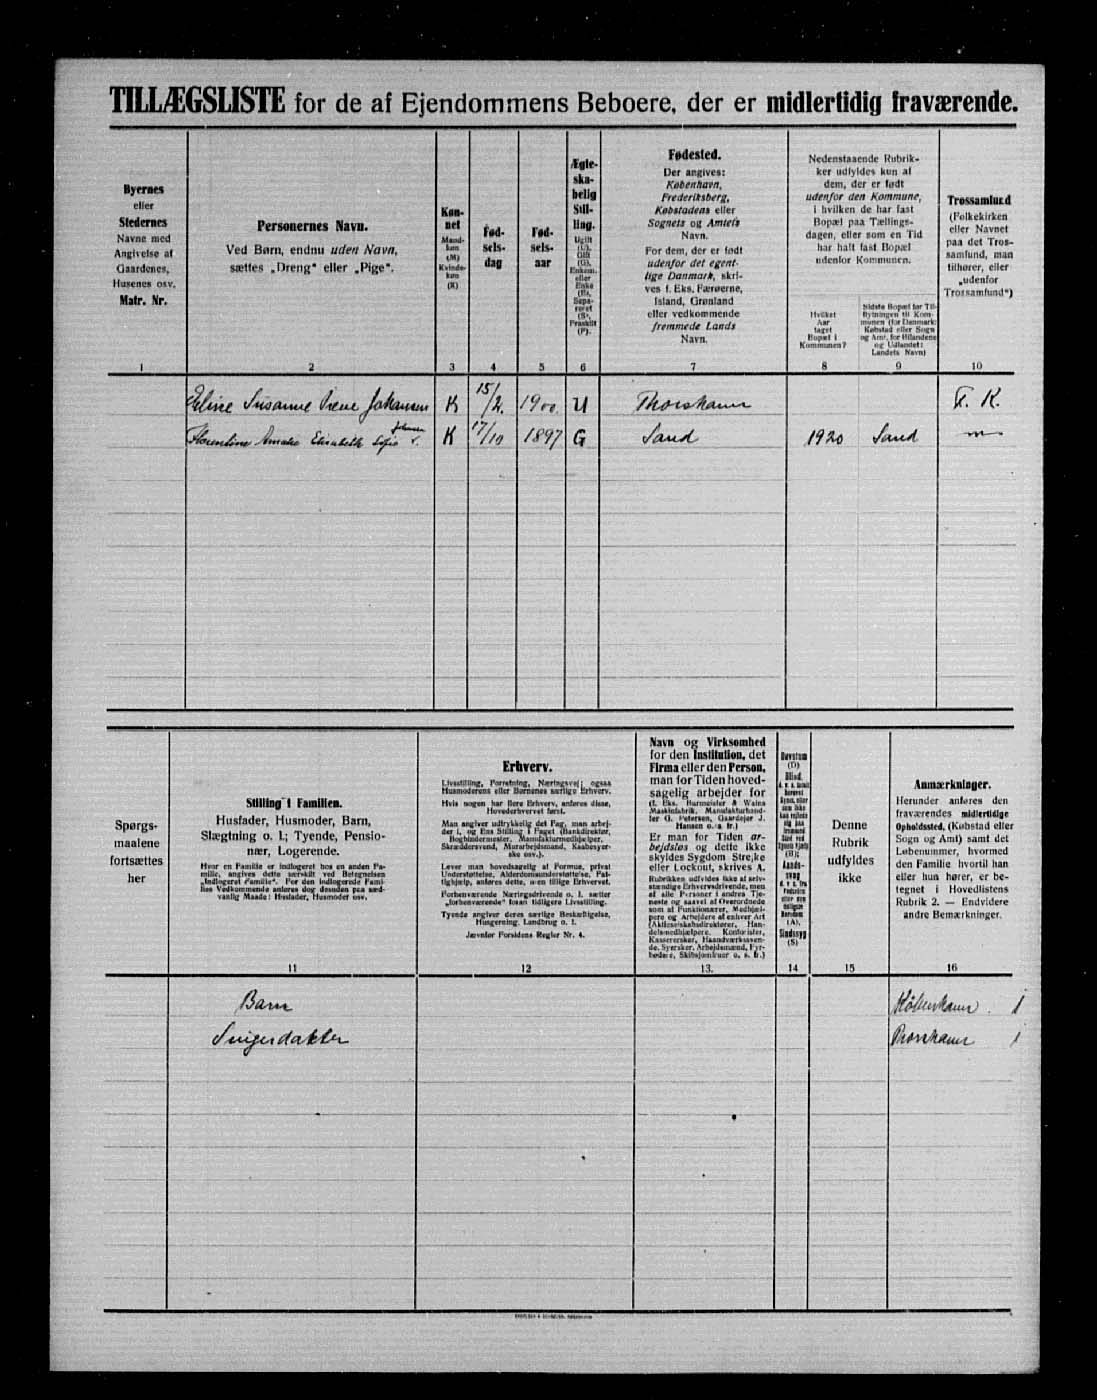 TILLÆGSLISTE for de af Ejendommens Beboere, der er midlertidig fraværende.
Byernes
eller
Stedernes
Navne med
Angivelse af
Gaardenes,
Husenes osv.
Matr. Nr.
1
Personernes Navn.
Ved Børn, endnu uden Navn,
sættes „Dreng“ eller „Pige“.
2
Køn-
net
Mand-
køn
(M)
Kvinde-
køn
(K)
3
Fød-
sels-
dag
4
Fød-
sels-
aar
5
Ægte-
ska-
belig
Stil-
ling.
Ugift
(U),
Gift
(G),
Enkem.
eller
Enke
(E),
Sepa-
reret
(S),
Fraskilt
(F).
6
Fødested.
Der angives:
København,
Frederiksberg,
Købstadens eller
Sognets og Amtets
Navn.
For dem, der er født
udenfor det egent-
lige Danmark, skri-
ves f. Eks. Færøerne,
Island, Grønland
eller vedkommende
fremmede Lands
Navn.
7
Nedenstaaende Rubrik-
ker udfyldes kun af
dem, der er født
udenfor den Kommune,
i hvilken de har fast
Bopæl paa Tællings-
dagen, eller som en Tid
har haft fast Bopæl
udenfor Kommunen.
Hvilket
Aar
taget
Bopæl i
Kommunen?
8
Sidste Bopæl før Til-
flytningen til Kom-
munen (for Danmark:
Købstad eller Sogn
og Amt, for Bilandene
og Udlandet:
Landets Navn)
9
Trossamfund
(Folkekirken
eller Navnet
paa det Tros-
samfund, man
tilhører, eller
„udenfor
Trossamfund“)
10
Susanne Irene Johansen K 15/2. 1900. U Thorshavn F. K.
Florentine Amalie Elisabeth Sofie K 17/10 1897 G Sand 1920 Sand
Spørgs-
maalene
fortsættes
her
Stilling i Familien.
Husfader, Husmoder, Barn,
Slægtning o. l.; Tyende, Pensio-
nær, Logerende.
Hvor en Familie er indlogeret hos en anden Fa-
milie, angives dette særskilt ved Betegnelsen
„Indlogeret Familie“. For den indlogerede Fami-
lies Vedkommende anføres dog desuden paa sæd-
vanlig Maade: Husfader, Husmoder osv.
11
Erhverv.
Livsstilling, Forretning, Næringsvej; ogsaa
Husmoderens eller Børnenes særlige Erhverv.
Hvis nogen har flere Erhverv, anføres disse,
Hovederhvervet først.
Man angiver udtrykkelig det Fag, man arbej-
der i, og Ens Stilling i Faget (Bankdirektør,
Bogbindermester, Manufakturmedhjælper,
Skræddersvend, Murarbejdsmand, Kasbesyer-
ske osv.).
Lever man hovedsagelig af Formue, privat
Understøttelse, Alderdomsunderstøttelse, Fat-
tighjælp, anføres dette, men tillige Erhvervet.
Forhenværende Næringsdrivende o. l. sætter
„forhenværende“ foran tidligere Livsstilling.
Tyende angiver deres særlige Beskæftigelse,
Husgerning, Landbrug o. l.
Jævnfør Forsidens Regler Nr. 4.
12
Navn og Virksomhed
for den Institution, det
Firma eller den Person,
man for Tiden hoved-
sagelig arbejder for
(f. Eks. Burmeister & Wains
Maskinfabrik, Manufakturhand-
ler G. Petersen, Gaardejer J.
Hansen o. a. fr.)
Er man for Tiden ar-
bejdsløs og dette ikke
skyldes Sygdom Strejke
eller Lockout, skrives A.
Rubrikken udfyldes ikke af selv-
stændige Erhvervsdrivende, men
af alle Personer i andres Tje-
neste og saavel af Overordnede
som af Funktionærer, Medhjæl-
pere og Arbejdere af enhver Art
(Aktieselskabsdirektører, Han-
delsmedhjælpere, Kontorister,
Kasserersker, Haandværkssven-
de, Syersker, Arbejdsmænd, Fyr-
bødere, Skibsjomfruer o. s. fr.)
13.
Døvstum
(D)
Blind
(B);
Aands-
svag
(A),
Sindssyg
(S)
14
Denne
Rubrik
udfyldes
ikke
15
Anmærkninger.
Herunder anføres den
fraværendes midlertidige
Opholdssted, (Købstad eller
Sogn og Amt) samt det
Løbenummer, hvormed
den Familie hvortil han
eller hun hører, er be-
tegnet i Hovedlistens
Rubrik 2. — Endvidere
andre Bemærkninger.
16
Barn København. 1
Svigerdatter Thorshavn 1